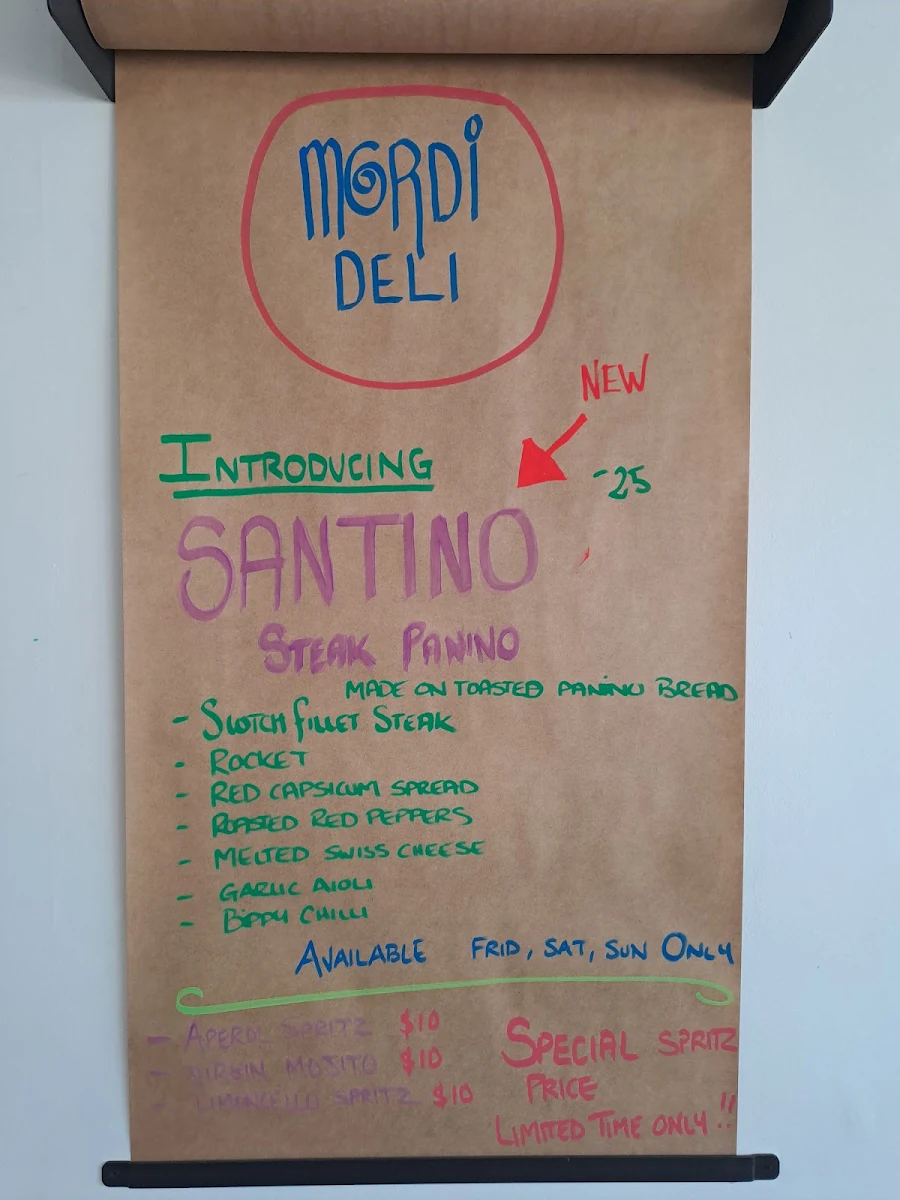 MORDI
DELI
NEW
INTRODUCING
-25
SANTINO
STEAK PANINO
MADE ON TOASTED PANINO BREAD
- SCOTCH FILLET STEAK
- ROCKET
- RED CAPSICUM SPREAD
- ROASTED RED PEPPERS
- MELTED SWISS CHEESE
- GARLIC AIOLI
- BIPPY CHILLI
AVAILABLE FRID, SAT, SUN ONLY
- APEROL SPRITZ $10
- VIRGIN MOJITO $10
- LIMONCELLO SPRITZ $10
SPECIAL SPRITZ
PRICE
LIMITED TIME ONLY !!